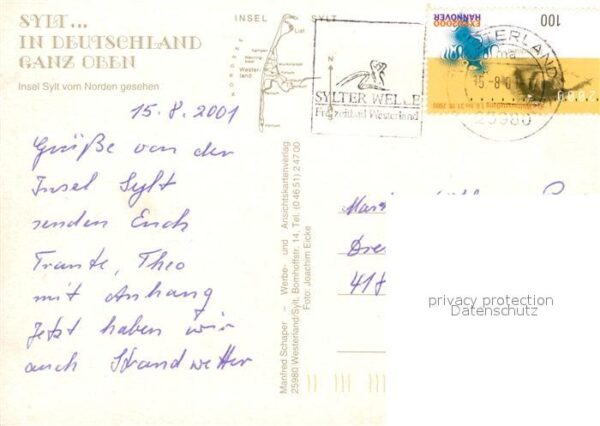 SYLT...
IN DEUTSCHLAND
GANZ OBEN
Insel Sylt vom Norden gesehen
15.8.2001
Grüße von der
Insel Sylt
senden Euch
Traute, Theo
mit Anhang
Jetzt haben wir
auch Strandwetter
INSEL SYLT
NORDSEE
List
Kampen
Wester-
land
N
SYLTER WELLE
Freizeitbad Westerland
WESTERLAND
15.-8.0
25980
EXPO2000
HANNOVER
100
Manfred Schaper – Werbe- und Ansichtskartenverlag
25980 Westerland/Sylt, Bomhoffstr. 14, Tel. (04651) 24700
Foto: Joachim Eicke
Dre
418
privacy protection
Datenschutz